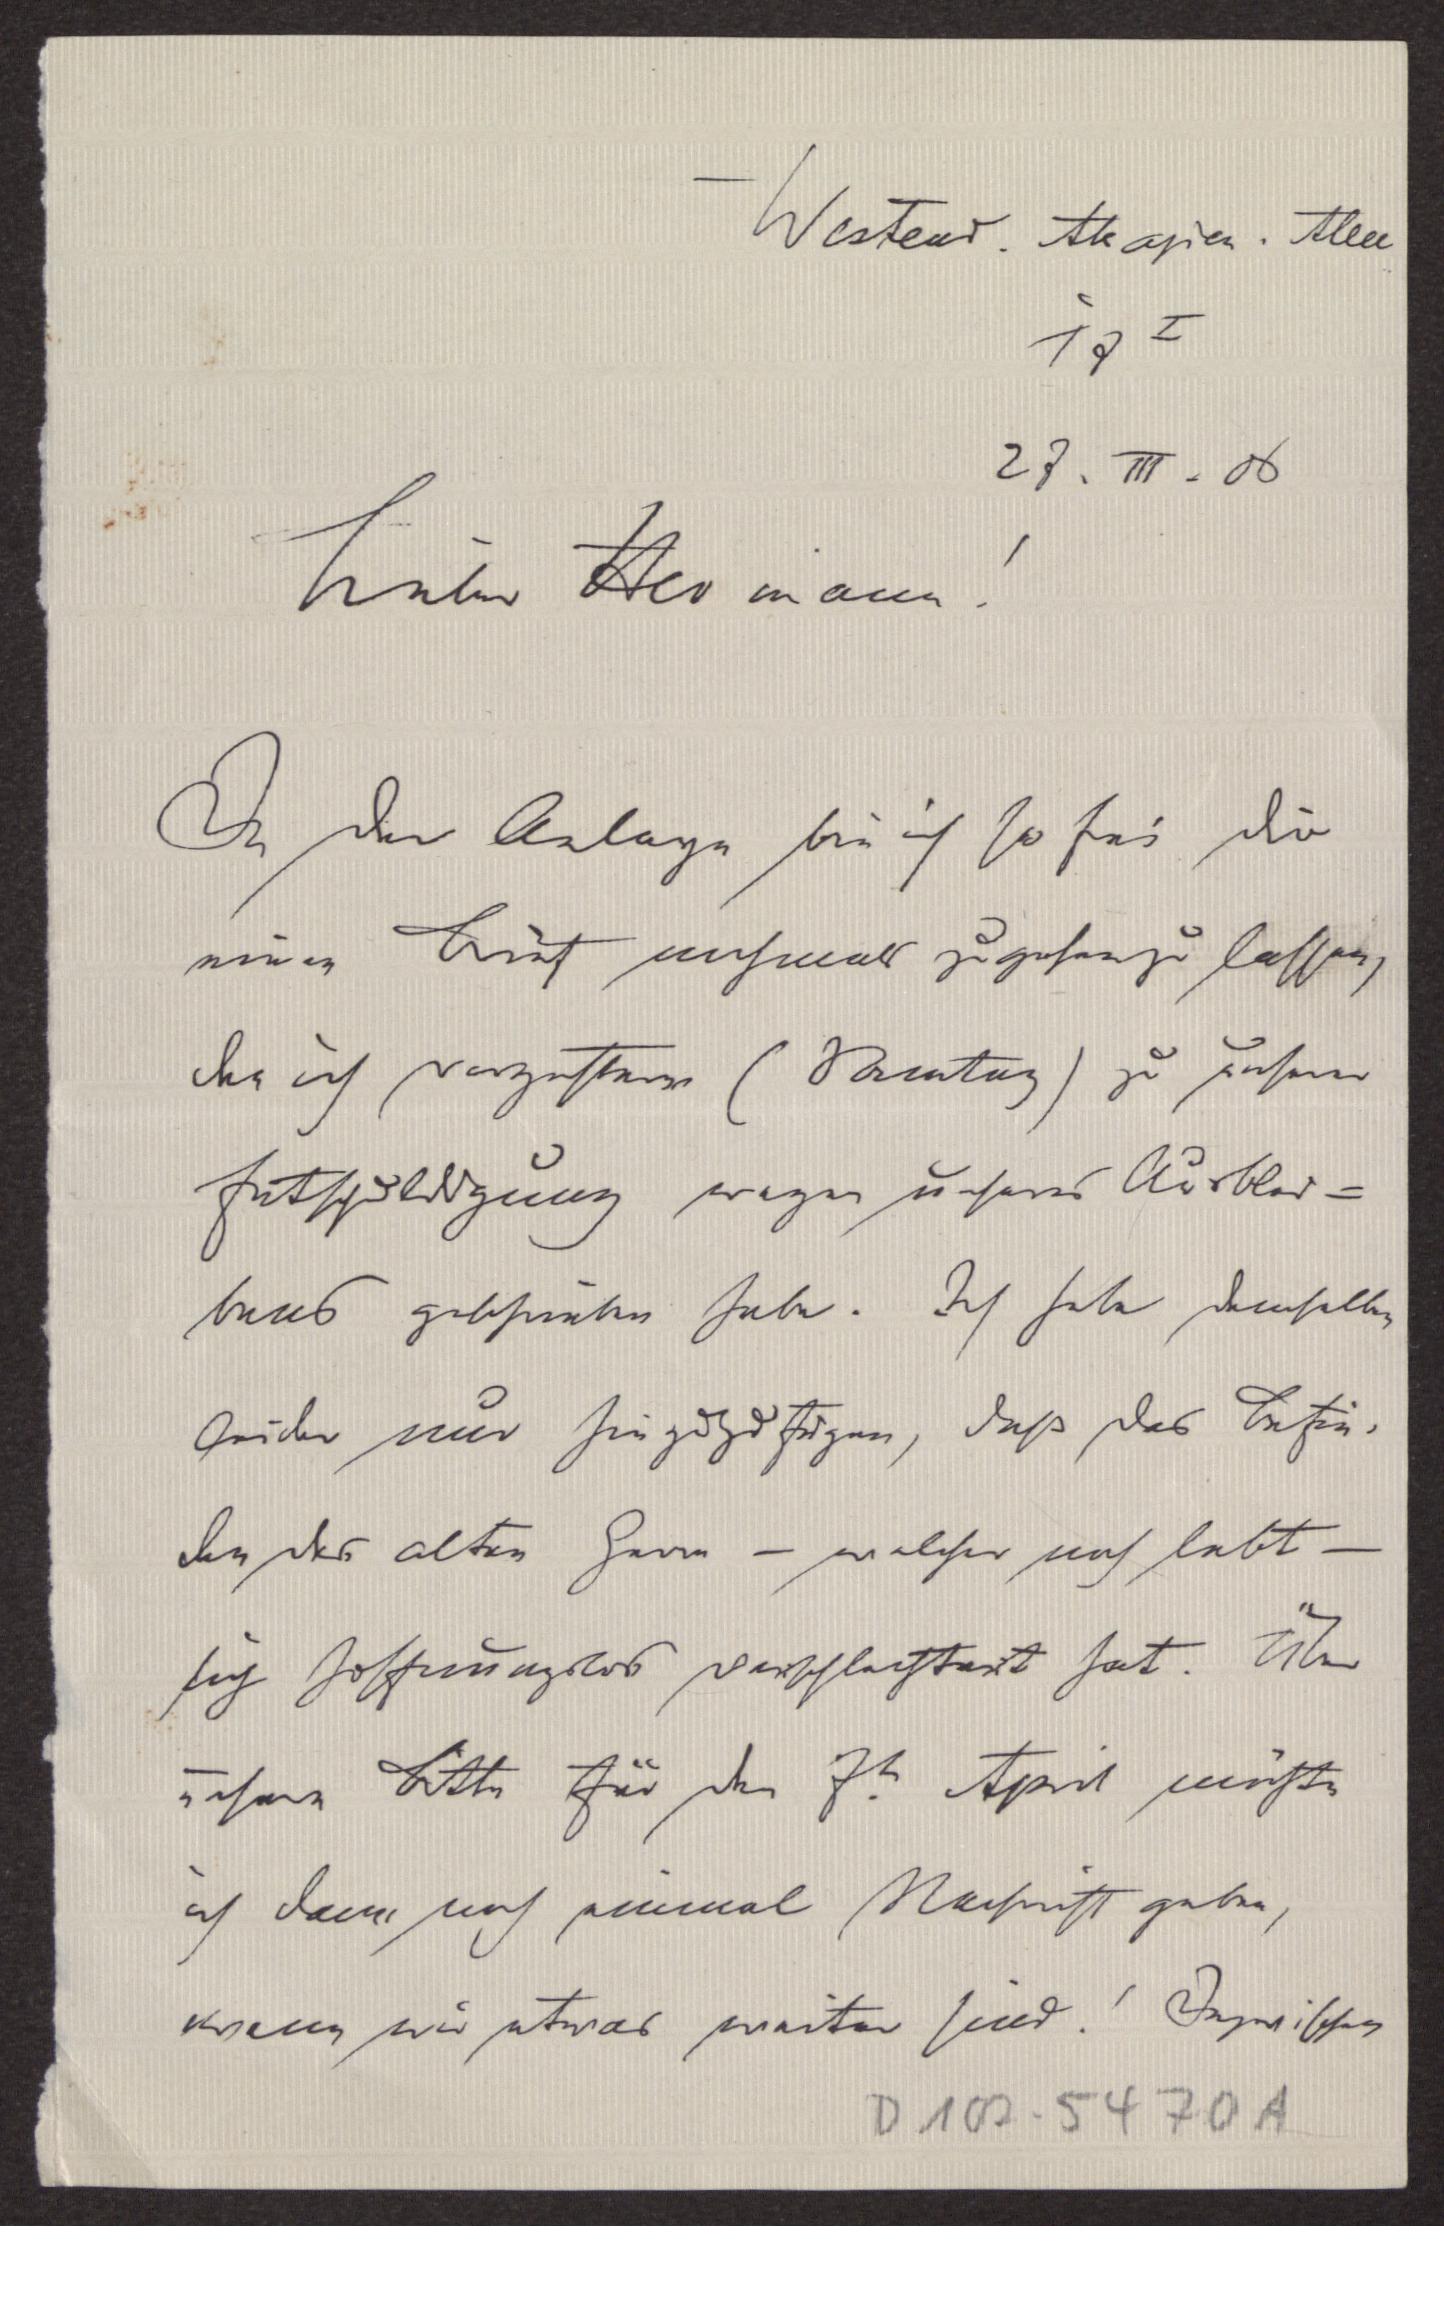 Westend. Akazien. Allee
17 I
27. III. 06
Lieber Hermann!
In der Anlage bin ich so frei dir
einen Brief nochmals zugehen zu lassen,
den ich vorgestern (Sonntag) zu unserer
Entschuldigung wegen unseres Ausblei=
bens geschrieben habe. Ich habe demselben
leider nur hinzuzufügen, daß das Befin-
den des alten Herrn – welcher noch lebt –
sich hoffnungslos verschlechtert hat. Über
unsere Bitte für den 7t. April möchte
ich dann noch einmal Nachricht geben,
wenn wir etwas weiter sind! Inzwischen
D 107-5470 A